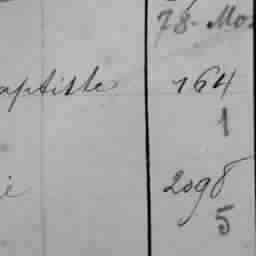 78. Mo
aptiste 164
1
2098
5